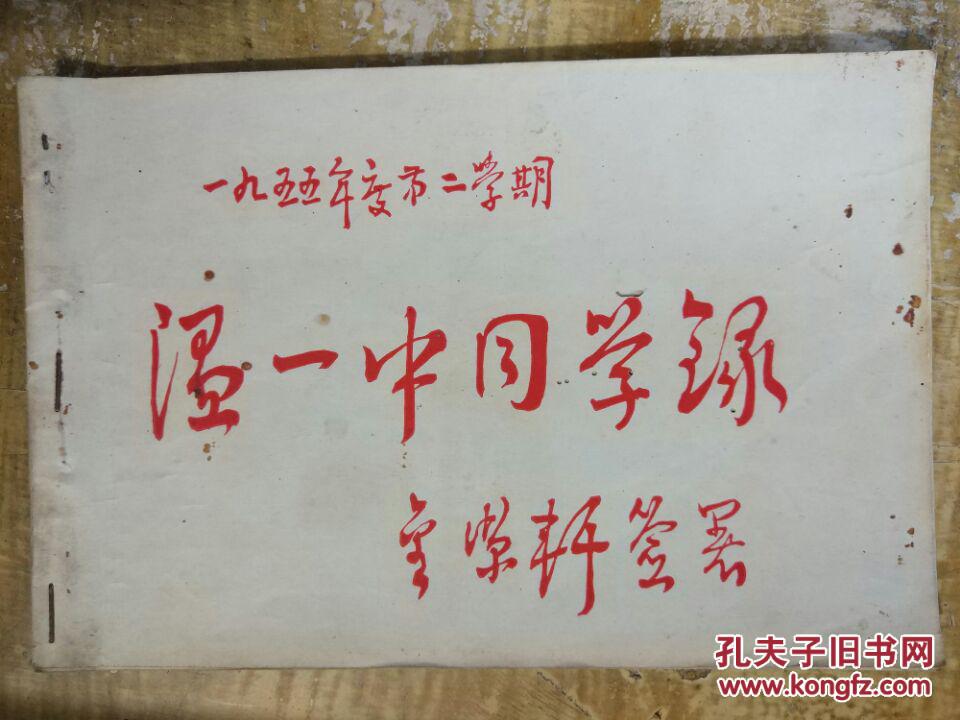 一九五五年度第二学期
温一中同学録
金荣轩签署
孔夫子旧书网
www.kongfz.com